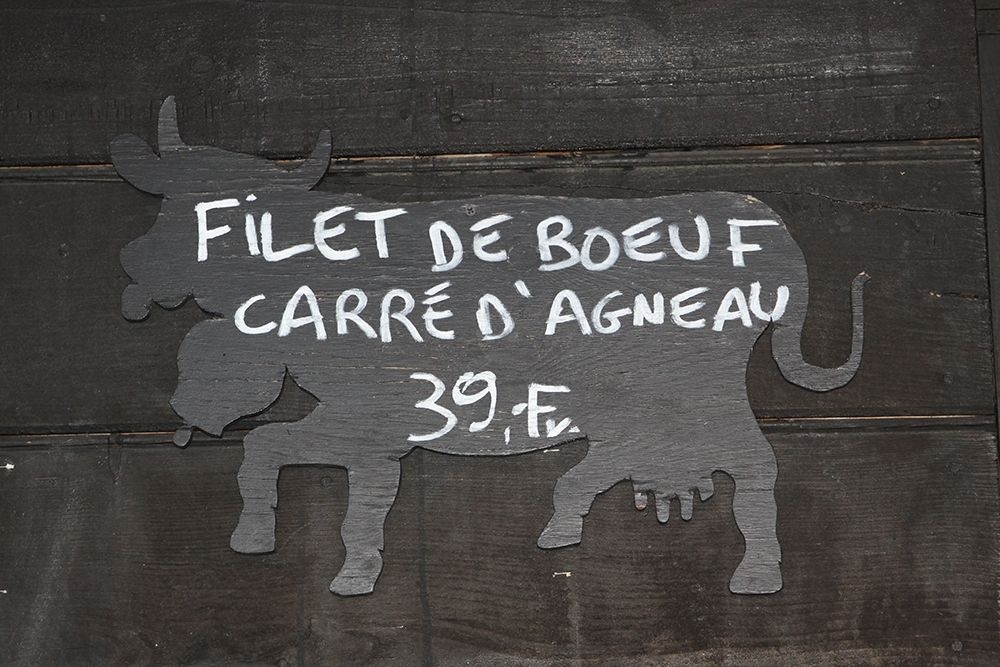 FILET DE BOEUF
CARRÉ D'AGNEAU
39,- Fr